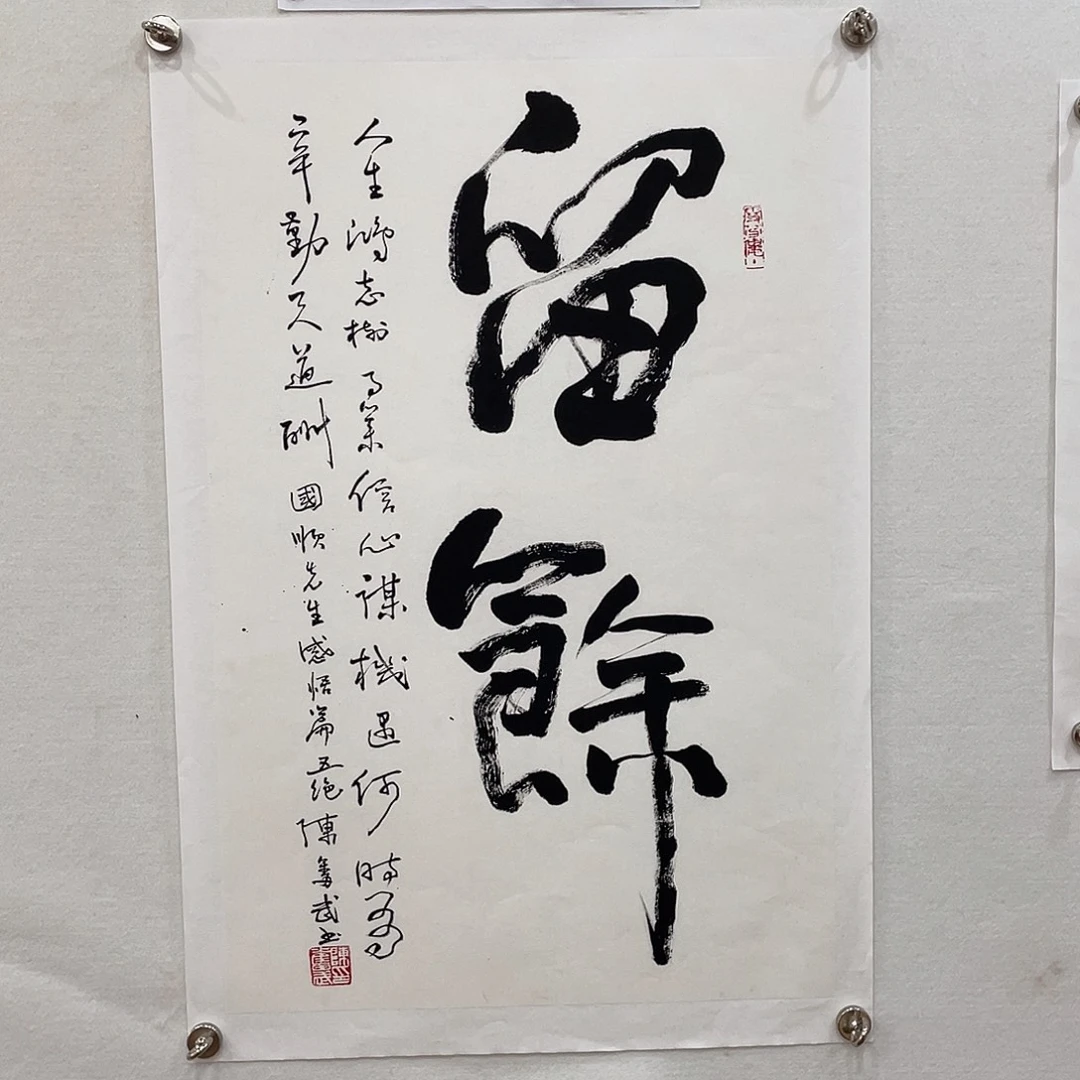 留餘
人生鴻志樹事業信心謀機遇何時
辛勤天道酬國順先生感悟篇五绝陳奮武书